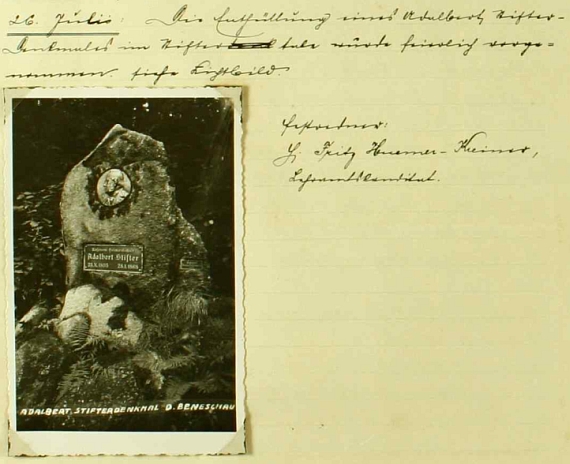 26. Juli: Die Enthüllung eines Adalbert Stifter-
Denkmales im Stifter tale wurde feierlich vorge-
nommen. siehe Lichtbild.
Festredner:
H. Fritz Huemer-Kreiner,
Lehramtskandidat.
Adalbert Stifter
ADALBERT. STIFTERDENKMAL D. BENESCHAU